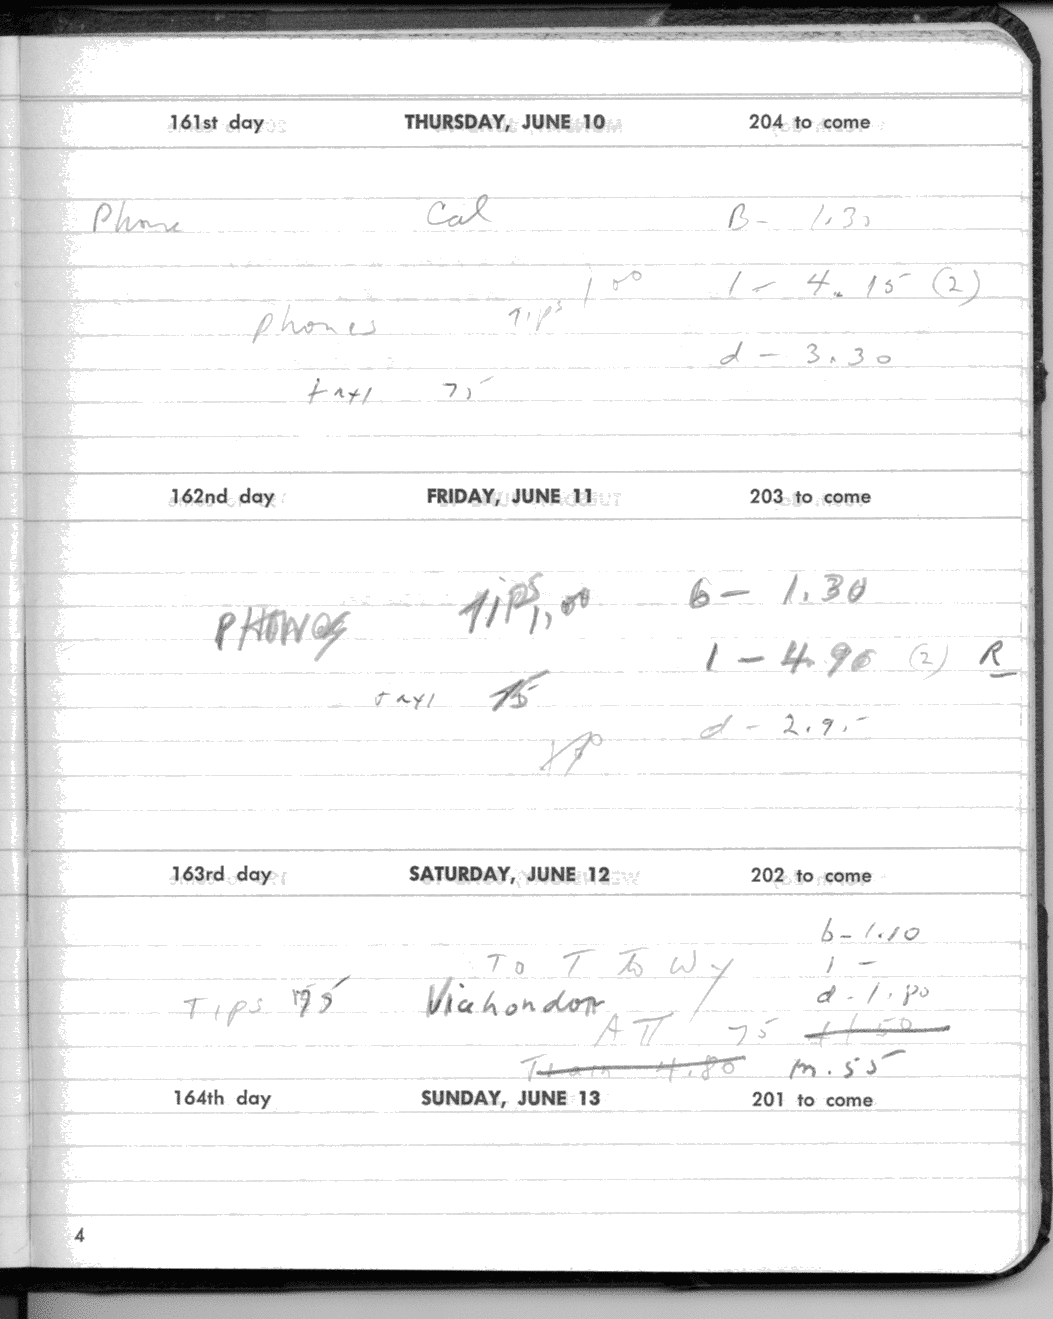 161st day THURSDAY, JUNE 10 204 to come
Phone Cal B- 1.30
1 - 4.15 (2)
phones Tips 1 00
d - 3.30
taxi 75
162nd day FRIDAY, JUNE 11 203 to come
PHONES Tips 1,00 b - 1.30
1 - 4.90 (2) R
taxi 75
d - 2.95
163rd day SATURDAY, JUNE 12 202 to come
b - 1.10
TO T To W 1 -
Tips 75 Viahondon d - 1.80
ATT 75 1.50
Train 4.80 m. 55
164th day SUNDAY, JUNE 13 201 to come
4